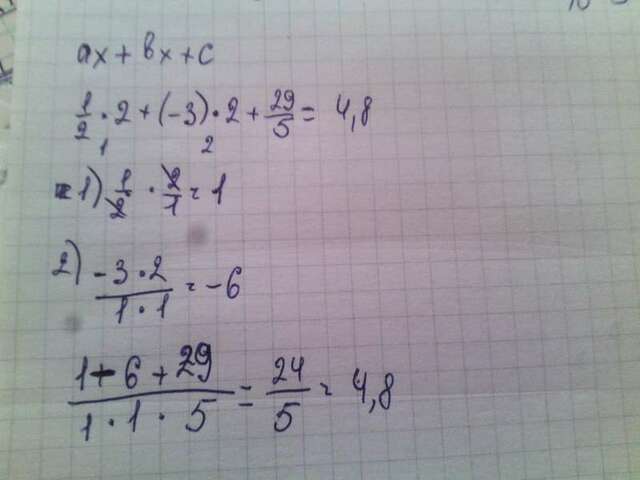 ax + bx + c
1/2 · 2 + (-3) · 2 + 29/5 = 4,8
1 2
1) 1/2 · 2/1 = 1
2) -3 · 2 / 1 · 1 = -6
1 - 6 + 29 / 1 · 1 · 5 = 24/5 = 4,8